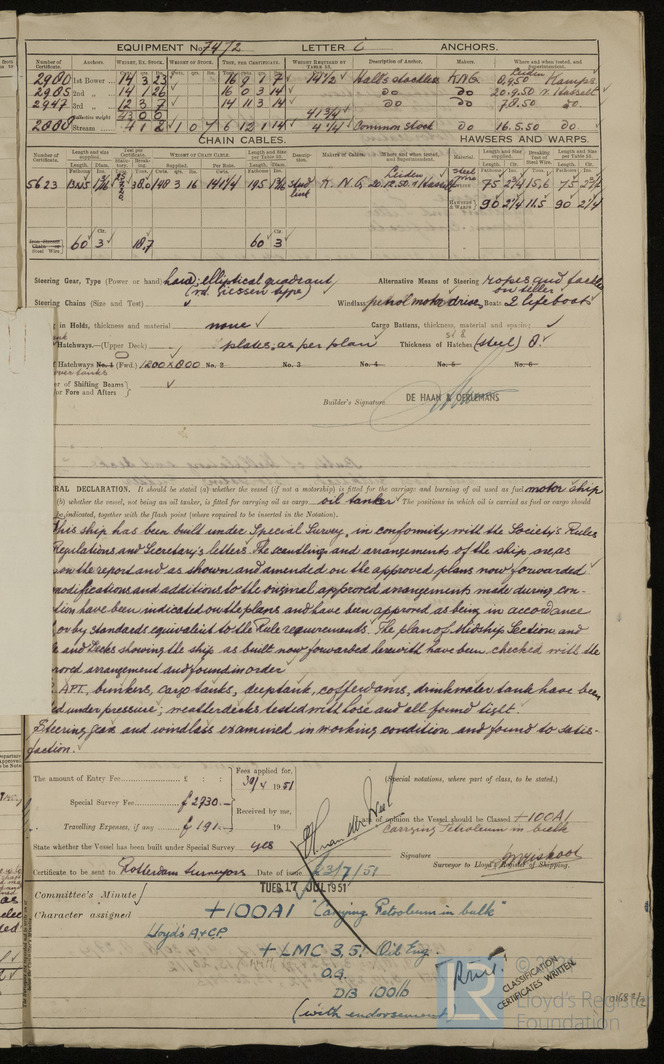 EQUIPMENT No 7472 LETTER C ANCHORS.
Number of Certificate. Anchors. WEIGHT, EX. STOCK. WEIGHT OF STOCK. TEST, PER CERTIFICATE. WEIGHT REQUIRED BY TABLE 53. Description of Anchor. Makers. Where and when tested, and Superintendent.
2980 1st Bower 14 3 23 16 9 1 7 14 1/2 Halls stockless K.N.G. Leiden
2985 2nd „ 14 1 26 16 0 3 14 Do Do 20.9.50
2947 3rd „ 12 3 7 14 11 3 14 Do Do 7.8.50 Do
Collective weight 41 3/4
Stream 4 1 2 1 0 7 6 12 1 14 4 1/4 Common stock Do 16.5.50 Do
CHAIN CABLES. HAWSERS AND WARPS.
Number of Certificate. Length and size supplied. Test per Certificate. WEIGHT OF CHAIN CABLE. Length and Size per Table 53. Description. Makers of Cables. Where and when tested, and Superintendent. Material. Length and Size supplied. Breaking Test of Steel Wire. Length and Size per Table 53.
5623 148 3 16 195 1 9/16 stud link K. N. G. Leiden 20.12.50 75 2 3/4 15,6 75 2 3/4
HAWSERS & WARPS 90 2 1/4 11.5 90 2 1/4
60 3 18.7 60 3
Steering Gear, Type (Power or hand) hand; elliptical quadrant Alternative Means of Steering ropes and tackle
on tiller
Steering Chains (Size and Test) Windlass petrol motor driven Boats 2 lifeboats
in Holds, thickness and material none Cargo Battens, thickness, material and spacing
Hatchways.—(Upper Deck) plates, as per plan Thickness of Hatches (steel) 8.
Hatchways No. 1 (Fwd.) 1200 x 800 No. 2 No. 3 No. 4 No. 5 No. 6
over tanks
er of Shifting Beams
or Fore and Afters
Builder's Signature DE HAAN & OERLEMANS
RAL DECLARATION. It should be stated (a) whether the vessel (if not a motorship) is fitted for the carrying and burning of oil used as fuel motor ship
(b) whether the vessel, not being an oil tanker, is fitted for carrying oil as cargo oil tanker The positions in which oil is carried as fuel or cargo should
be indicated, together with the flash point (where required to be inserted in the Notation).
This ship has been built under Special Survey, in conformity with the Society's Rules
Regulations and Secretary's letters. The scantling and arrangements of the ship are as
on the report and as shown and amended on the approved plans now forwarded
modifications and additions to the original approved arrangements made during con-
tion have been indicated on the plans and have been approved as being in accordance
or by standards equivalent to the Rule requirements. The plan of Midship Section and
and Decks showing the ship as built now forwarded herewith have been checked with the
roved arrangement and found in order
APT, bunkers, cargo tanks, deeptank, cofferdams, drinkwater tank have been
ed under pressure; weatherdecks tested with hose and all found tight.
Steering gear and windlass examined in working condition and found to satis-
faction.
The amount of Entry Fee £ : : Fees applied for, 30/4 1951 (Special notations, where part of class, to be stated.)
Special Survey Fee £ 2730.- Received by me, I am of opinion the Vessel should be Classed +100A1
Travelling Expenses, if any £ 191.- 19 carrying Petroleum in bulk
State whether the Vessel has been built under Special Survey yes Signature
Surveyor to Lloyd's Register of Shipping.
Certificate to be sent to Rotterdam Surveyors Date of issue 23/7/51
Committee's Minute TUES. 17 JUL 1951
Character assigned +100A1 "Carrying Petroleum in bulk"
Lloyd's A & CP.
+LMC 3,51 Oil Eng.
O.G.
DB 100 lb
(with endorsement)
CLASSIFICATION
CERTIFICATES WRITTEN
LR
Lloyd's Register
Foundation